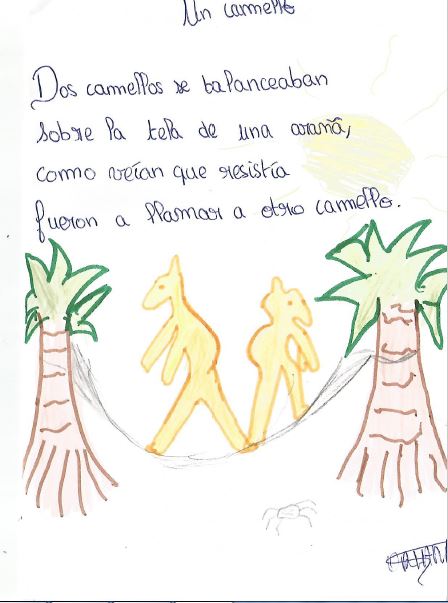 Un camello
Dos camellos se balanceaban
sobre la tela de una arañá,
como veían que resistía
fueron a llamar a otro camello.